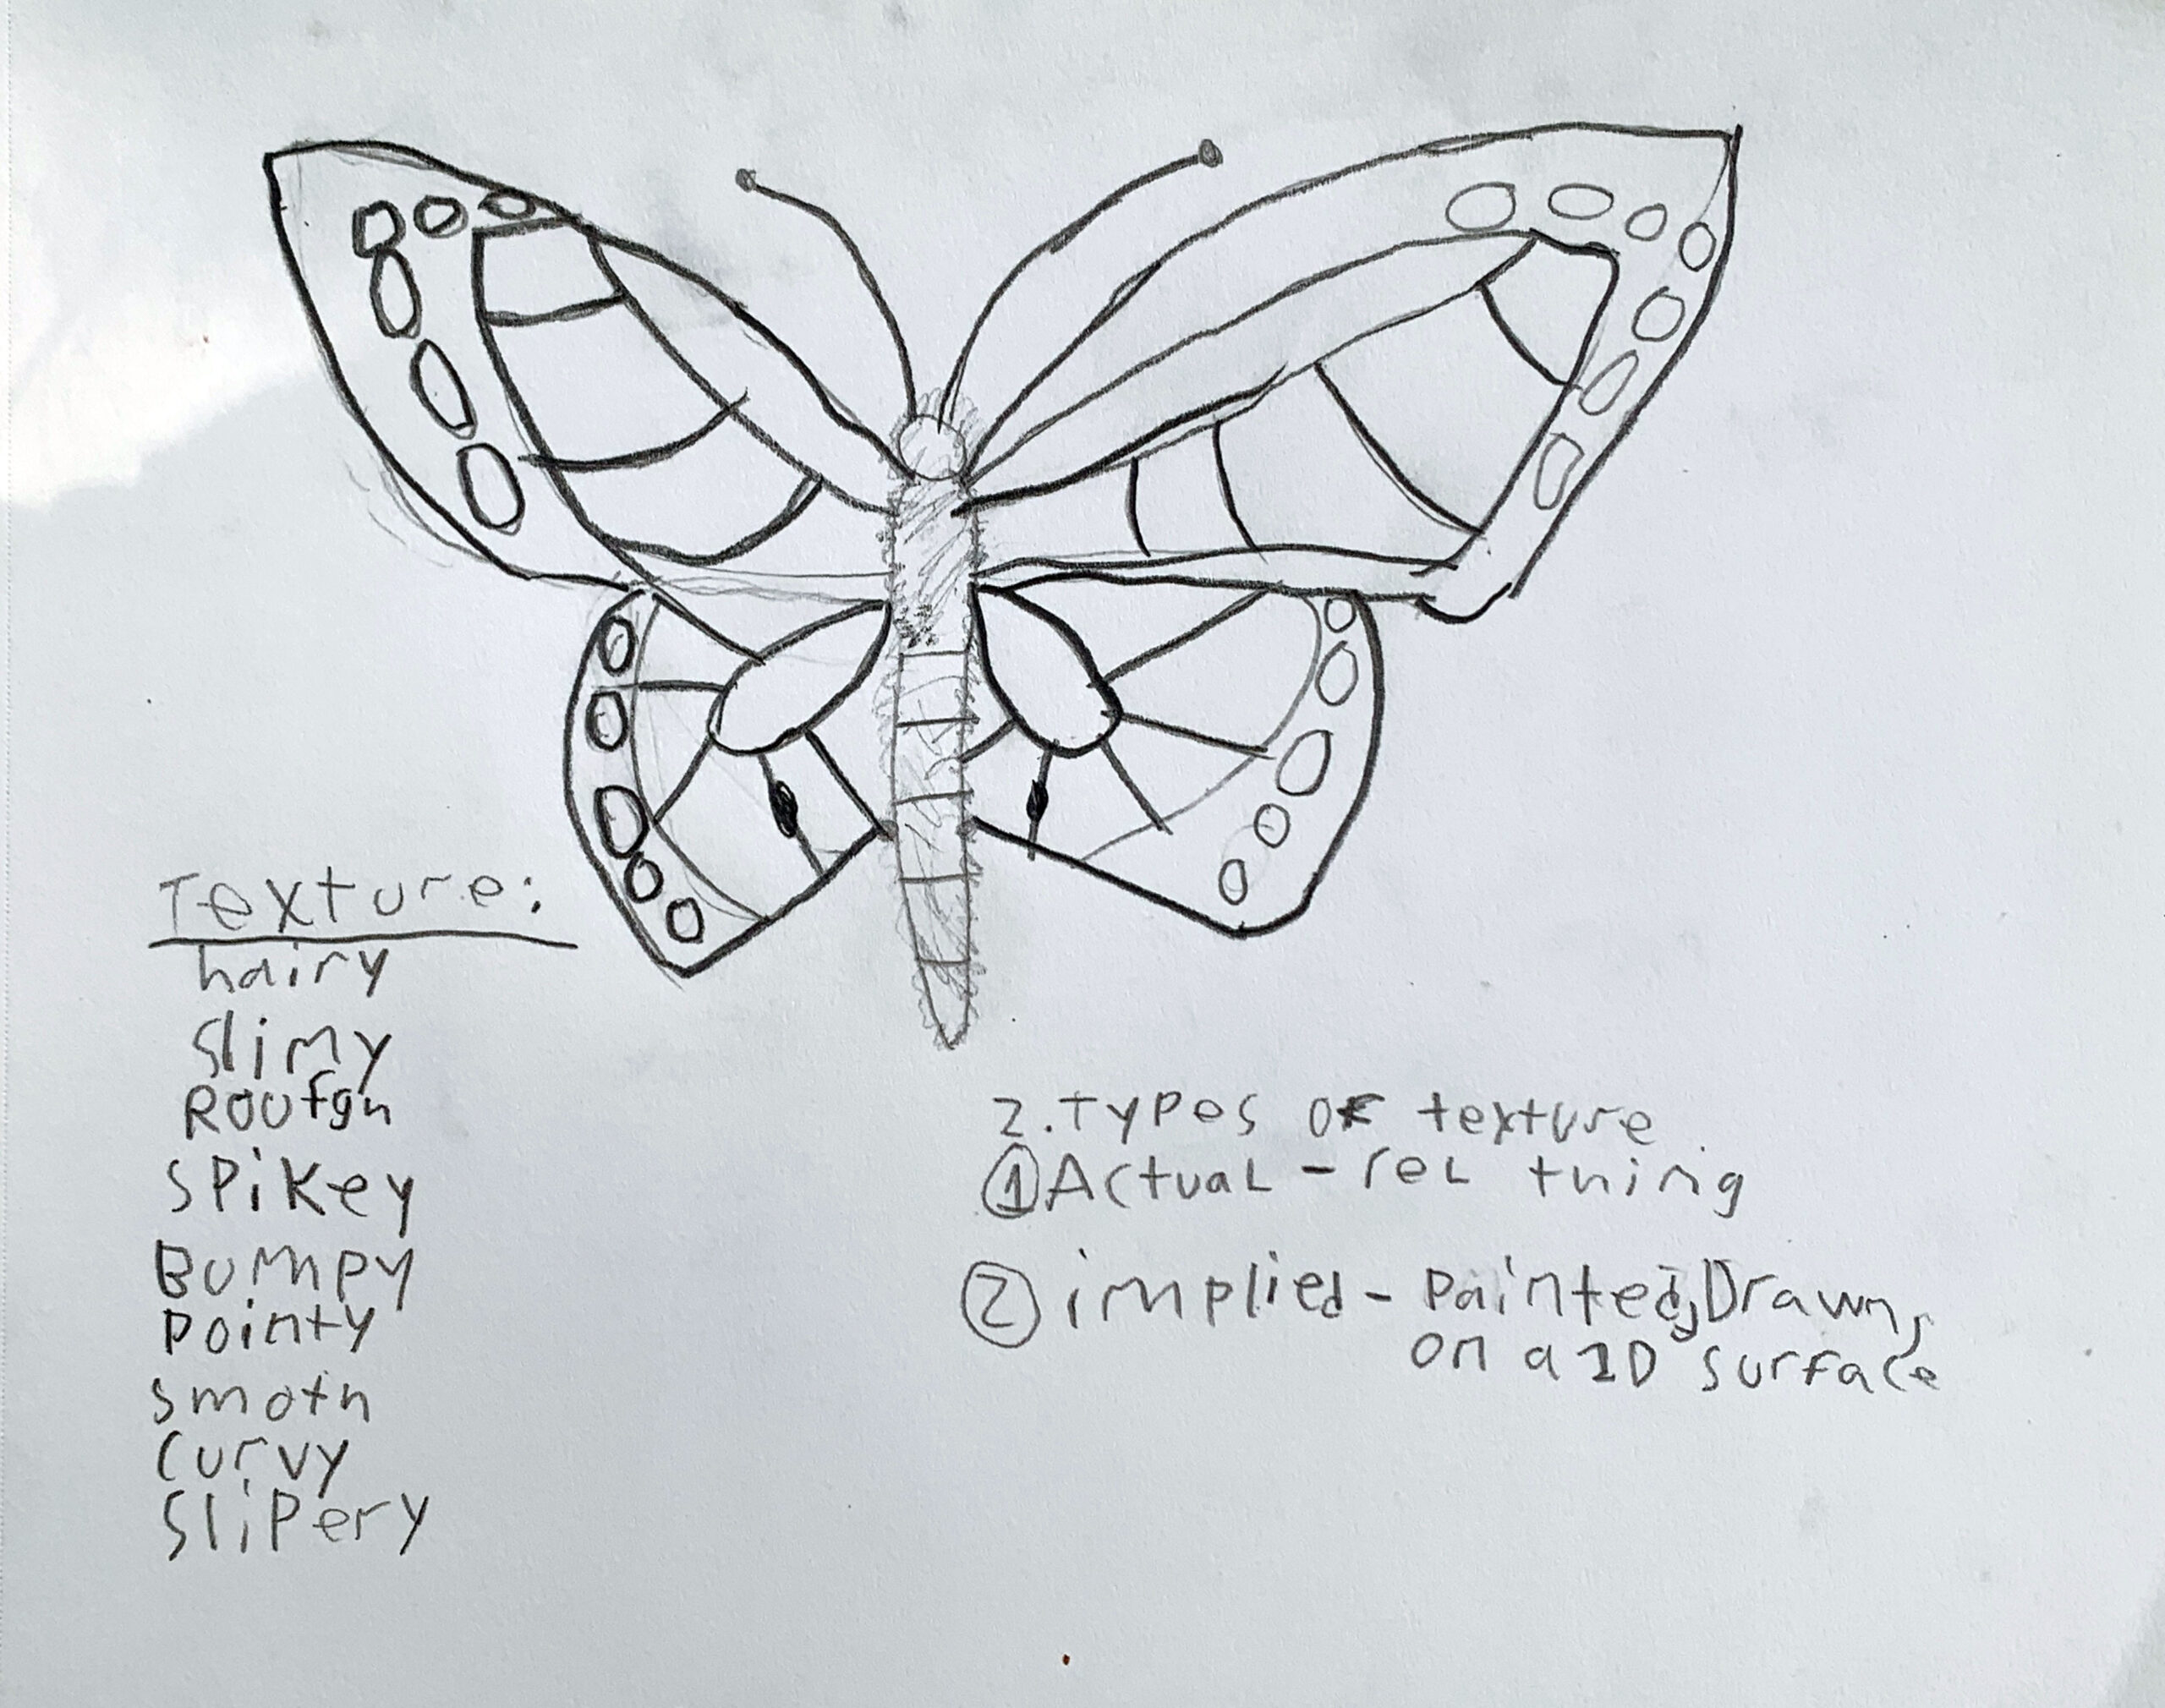 Texture:
hairy
Slimy
Roufgh
SPiKey
BUMPY
Pointy
smoth
Curvy
SliPery
2.Types OF texture
① Actual - reL thing
② implied - Painted, Drawn,
on a 2D surface